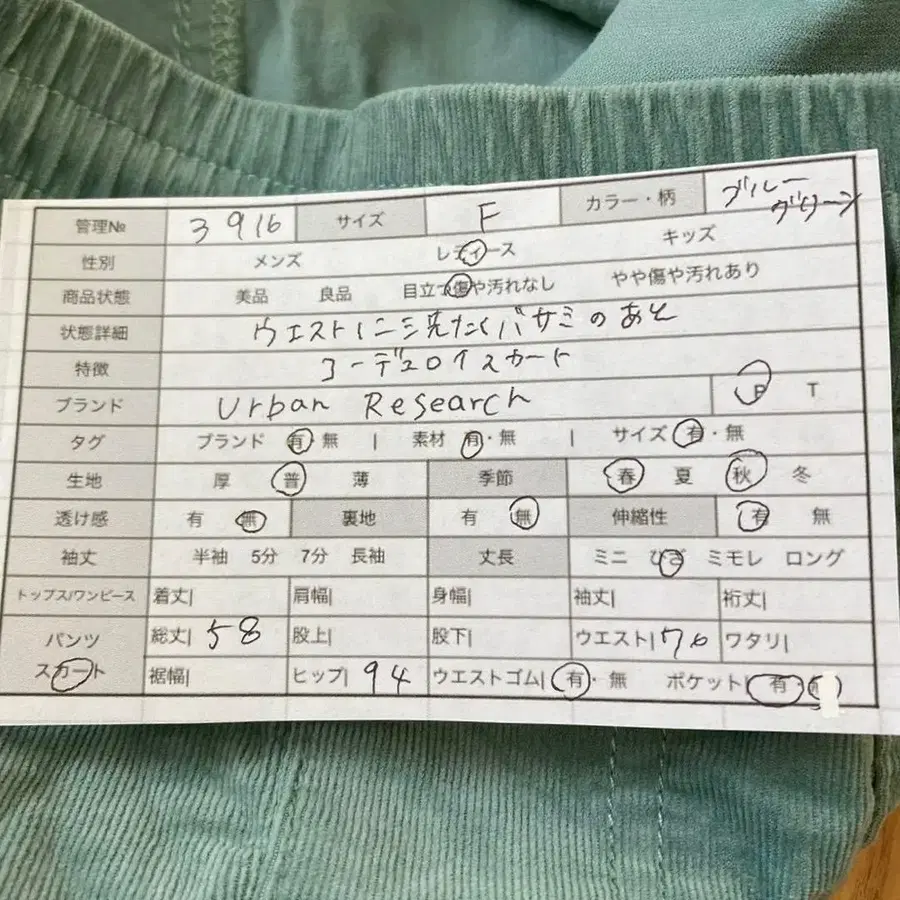 管理№ 3916 サイズ F カラー・柄 ブルーグリーン
性別 メンズ レディース キッズ
商品状態 美品 良品 目立つ傷や汚れなし やや傷や汚れあり
状態詳細 ウエストに洗たくバサミのあと
特徴 コーデュロイスカート
ブランド Urban Research P T
タグ ブランド 有・無 | 素材 有・無 | サイズ 有・無
生地 厚 普 薄 季節 春 夏 秋 冬
透け感 有 無 裏地 有 無 伸縮性 有 無
袖丈 半袖 5分 7分 長袖 丈長 ミニ ひざ ミモレ ロング
トップス/ワンピース 着丈| 肩幅| 身幅| 袖丈| 裄丈|
パンツ 総丈| 58 股上| 股下| ウエスト| 70 ワタリ|
スカート 裾幅| ヒップ| 94 ウエストゴム| 有・無 ポケット| 有